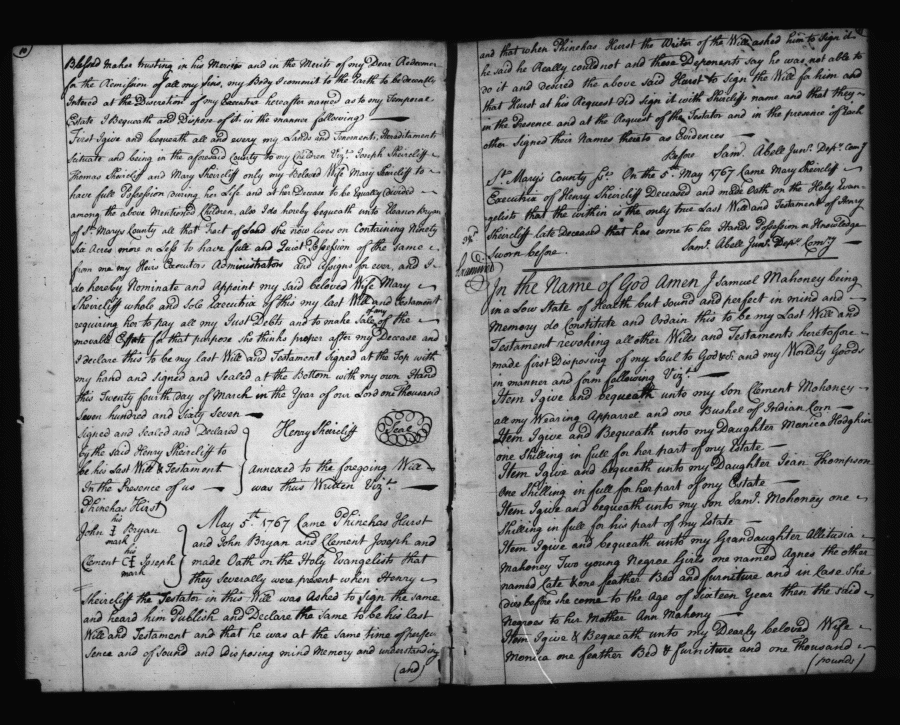 10
Blessed maker trusting in his Mercies and in the Merits of my Dear Redeemer
for the Remission of all my Sins, my Body I commit to the Earth to be decently
Interred at the Discretion of my Executrix hereafter named as to my Temporal
Estate I Bequeath and Dispose of it in the manner following
First I give and bequeath all and every my Lands and Tenements, Hereditaments
Scituate and being in the aforesaid County to my Children Vizt. Joseph Sheircliff
Thomas Sheircliff and Mary Sheircliff only my Beloved Wife Mary Sheircliff to
have full Possession during her Life and at her Decease to be Equally Divided
among the above Mentioned Children, also I do hereby bequeath unto Eleanor Bryan
of St. Marys County all that Tract of Land She now lives on Containing Ninety
Six Acres more or Less to have full and Quiet Possession of the Same
from me my Heirs Executors Administrators and Assigns for ever, and I
do hereby Nominate and Appoint my said beloved Wife Mary
Sheircliff whole and Sole Executrix of this my last Will and Testament
requiring her to pay all my Just Debts and to make Sale of any of the
movable Estate for that purpose She thinks proper after my Decease and
I declare this to be my last Will and Testament Signed at the Top with
my hand and Signed and Sealed at the Bottom with my own Hand
this Twenty fourth day of March in the Year of our Lord one Thousand
Seven hundred and Sixty Seven
Signed and Sealed and Declared
by the said Henry Sheircliff to
be his Last Will & Testament
In the Presence of us
Henry Sheircliff Seal
annexed to the foregoing Will
was thus Written Vizt.
Phinehas Hurst
his
John I Bryan
mark
his
Clement C Joseph
mark
May 5th. 1767 Came Phinehas Hurst
and John Bryan and Clement Joseph and
made Oath on the Holy Evangelists that
they Severally were present when Henry
Sheircliff the Testator in this Will was Asked to Sign the Same
and heard him Publish and Declare the Same to be his last
Will and Testament and that he was at the Same time of perfect
Sence and of Sound and disposing mind Memory and understanding
(and)
and that when Phinehas Hurst the Writer of the Will asked him to Sign it
he said he Really could not and these Deponents Say he was not able to
do it and desired the above said Hurst to Sign the Will for him and
that Hurst at his Request did Sign it with Sheircliffs name and that they
in the Presence and at the Request of the Testator and in the presence of Each
other Signed their Names thereto as Evidences
Before Saml. Abell Junr. Depty. Comry
St. Mary's County Sct. On the 5th. May 1767 Came Mary Sheircliff
Executrix of Henry Sheircliff Deceased and made Oath on the Holy Evan-
gelists that the within is the only true Last Will and Testament of Henry
Sheircliff late Deceased that has come to her Hands Possession or Knowledge
Sworn before Saml. Abell Junr. Dept. Comry
Examined
In the Name of God Amen I Samuel Mahoney being
in a Low State of Health but Sound and perfect in mind and
Memory do Constitute and Ordain this to be my Last Will and
Testament revoking all other Wills and Testaments heretofore
made first Disposing of my Soul to God &c. and my Wordly Goods
in manner and form following Vizt.
Item I give and bequeath unto my Son Clement Mahoney
all my Wearing Apparrel and one Bushel of Indian Corn
Item I give and Bequeath unto my Daughter Monica Hodgkin
one Shilling in full for her part of my Estate
Item I give and bequeath unto my Daughter Jean Thompson
One Shilling in full for her part of my Estate
Item I give and bequeath unto my Son Saml. Mahoney one
Shilling in full for his part of my Estate
Item I give and bequeath unto my Grandaughter Alletudia
Mahoney Two young Negroe Girls one named Agnes the other
named Cate & one feather Bed and furniture, and in Case She
dies before She come to the Age of Sixteen Year then the said
Negroes to her Mother Ann Mahony
Item I give & Bequeath unto my Dearly beloved Wife
Monica one feather Bed & furniture and one Thousand
(pounds)